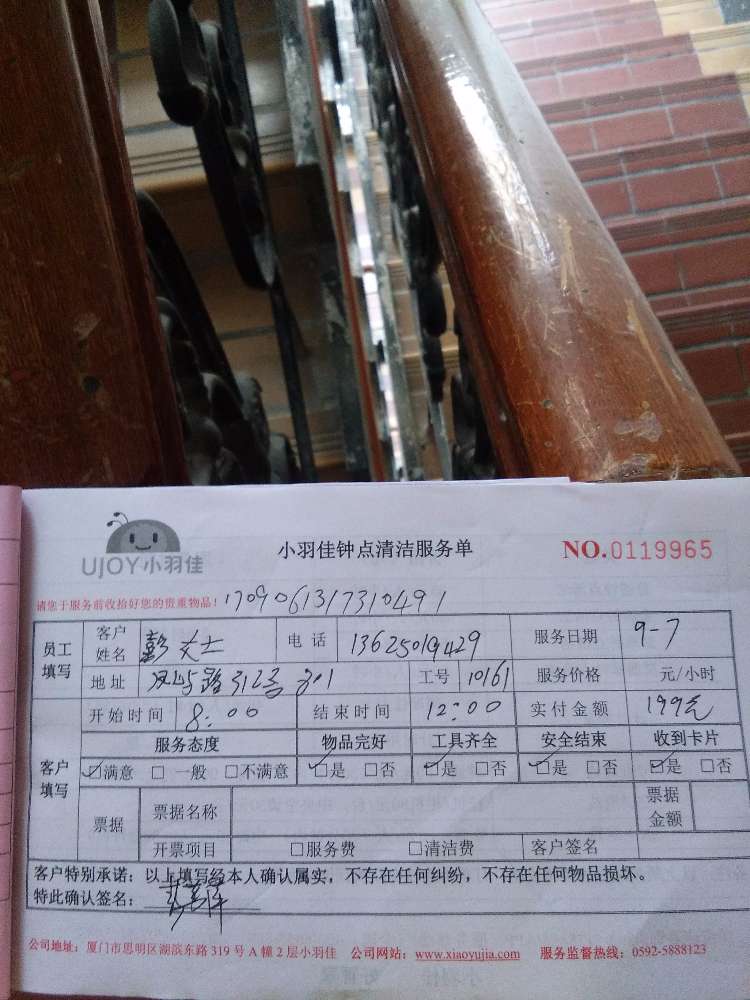 UJOY小羽佳
小羽佳钟点清洁服务单
NO.0119965
请您于服务前收拾好您的贵重物品！ 1709061317310491
员工填写 客户姓名 彭女士 电话 13625019429 服务日期 9-7
地址 312号 301 工号 10161 服务价格 元/小时
客户填写 开始时间 8:00 结束时间 12:00 实付金额 199元
服务态度 物品完好 工具齐全 安全结束 收到卡片
☑满意 □一般 □不满意 ☑是 □否 ☑是 □否 ☑是 □否 ☑是 □否
票据 票据名称 票据金额
开票项目 □服务费 □清洁费 客户签名
客户特别承诺：以上填写经本人确认属实，不存在任何纠纷，不存在任何物品损坏。
特此确认签名：
公司地址：厦门市思明区湖滨东路 319 号 A 幢 2 层小羽佳 公司网站：www.xiaoyujia.com 服务监督热线：0592-5888123